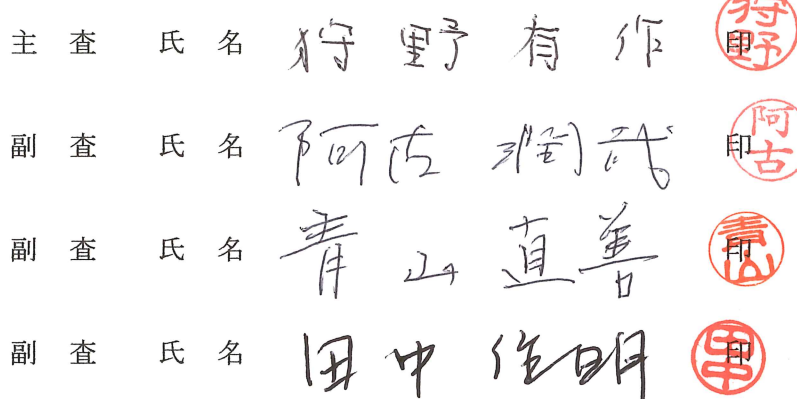 主査 氏名 狩野 有作 印 狩野
副査 氏名 阿古 潤哉 印 阿古
副査 氏名 青山 直善 印 青山
副査 氏名 田中 住明 印 田中